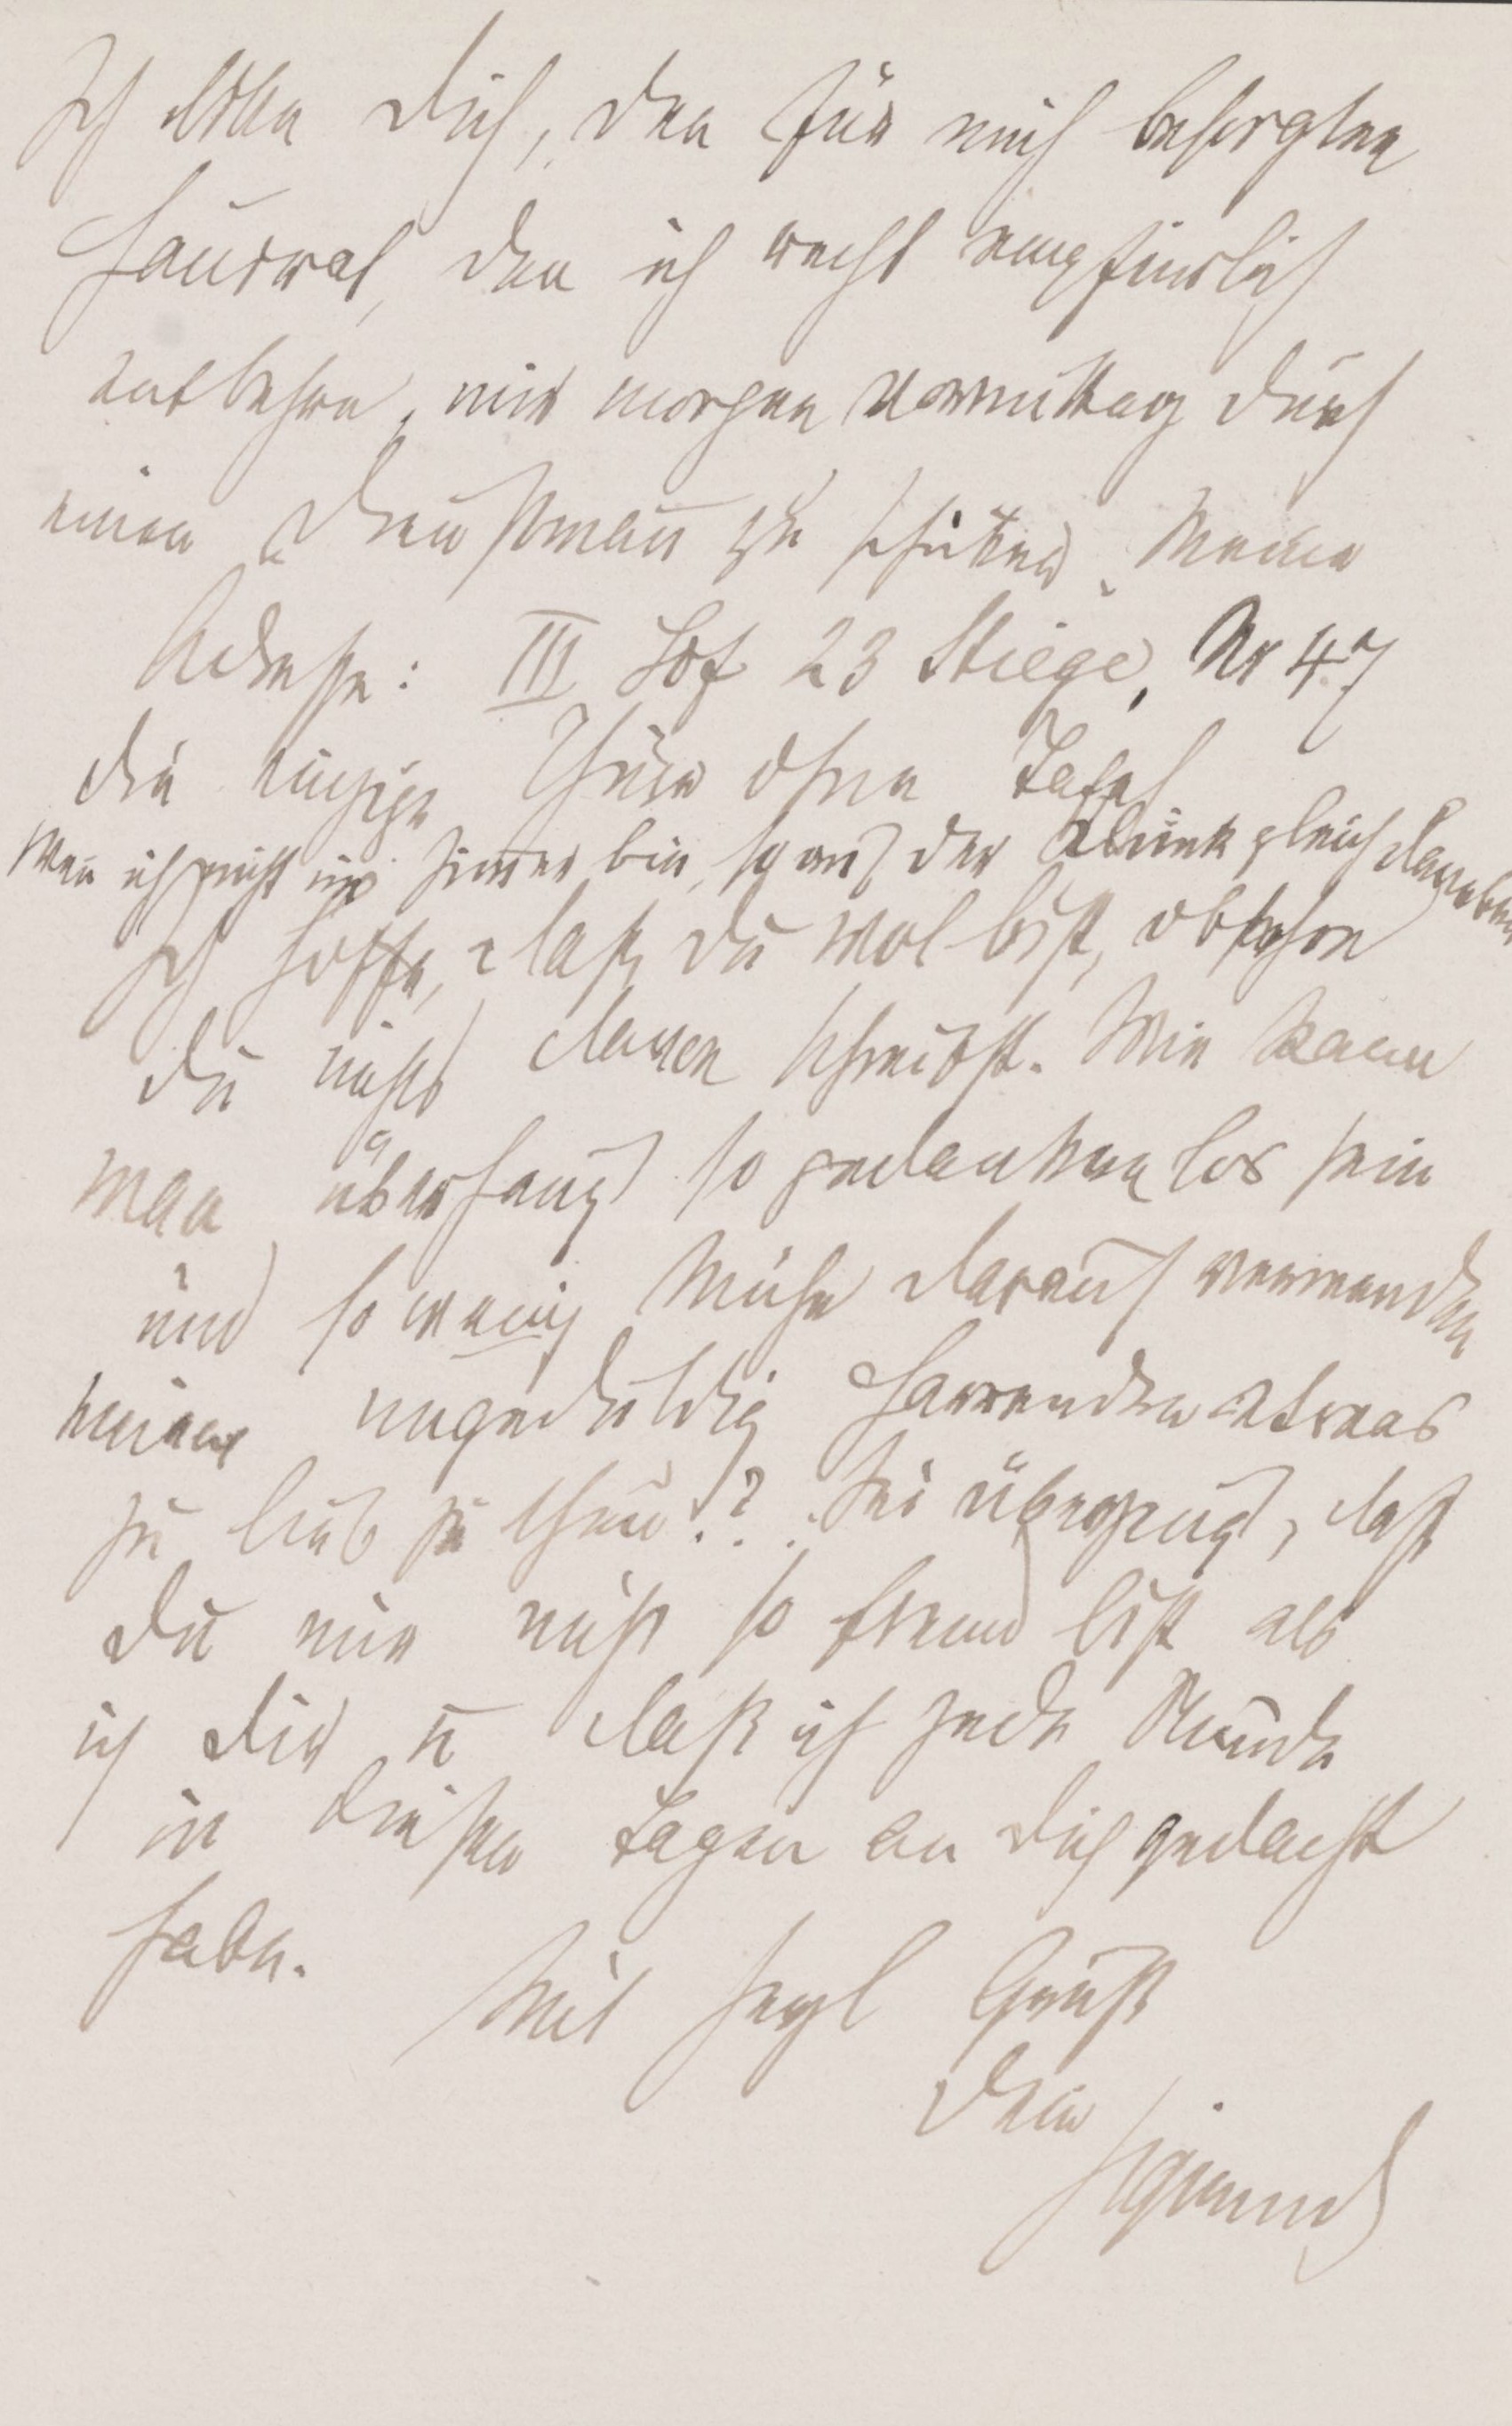 Ich bitte Dich, den für mich besorgten
Hausrat, den ich recht empfindlich
entbehre, mir morgen Vormittag durch
einen Dienstmann zu schicken. Meine
Adresse: III Hof 23 Stiege, Nr 47
die einzige Thüre ohne Tafel
Wen̄ ich nicht im Zim̄er bin, so auf der Klinik gleich daneben
Ich hoffe, daß du wol bist, obschon
du nichts davon schreibst. Wie kann
man überhaupt so gedankenlos sein
und so wenig Mühe darauf verwenden
einem ungeduldig Harrenden etwas
zu lieb zu thun!? Sei überzeugt, daß
du mir nicht so fremd bist als
ich dir u daß ich jede Stunde
in diesen Tagen an dich gedacht
habe.
Mit herzl Gruß
Dein
Sigmund